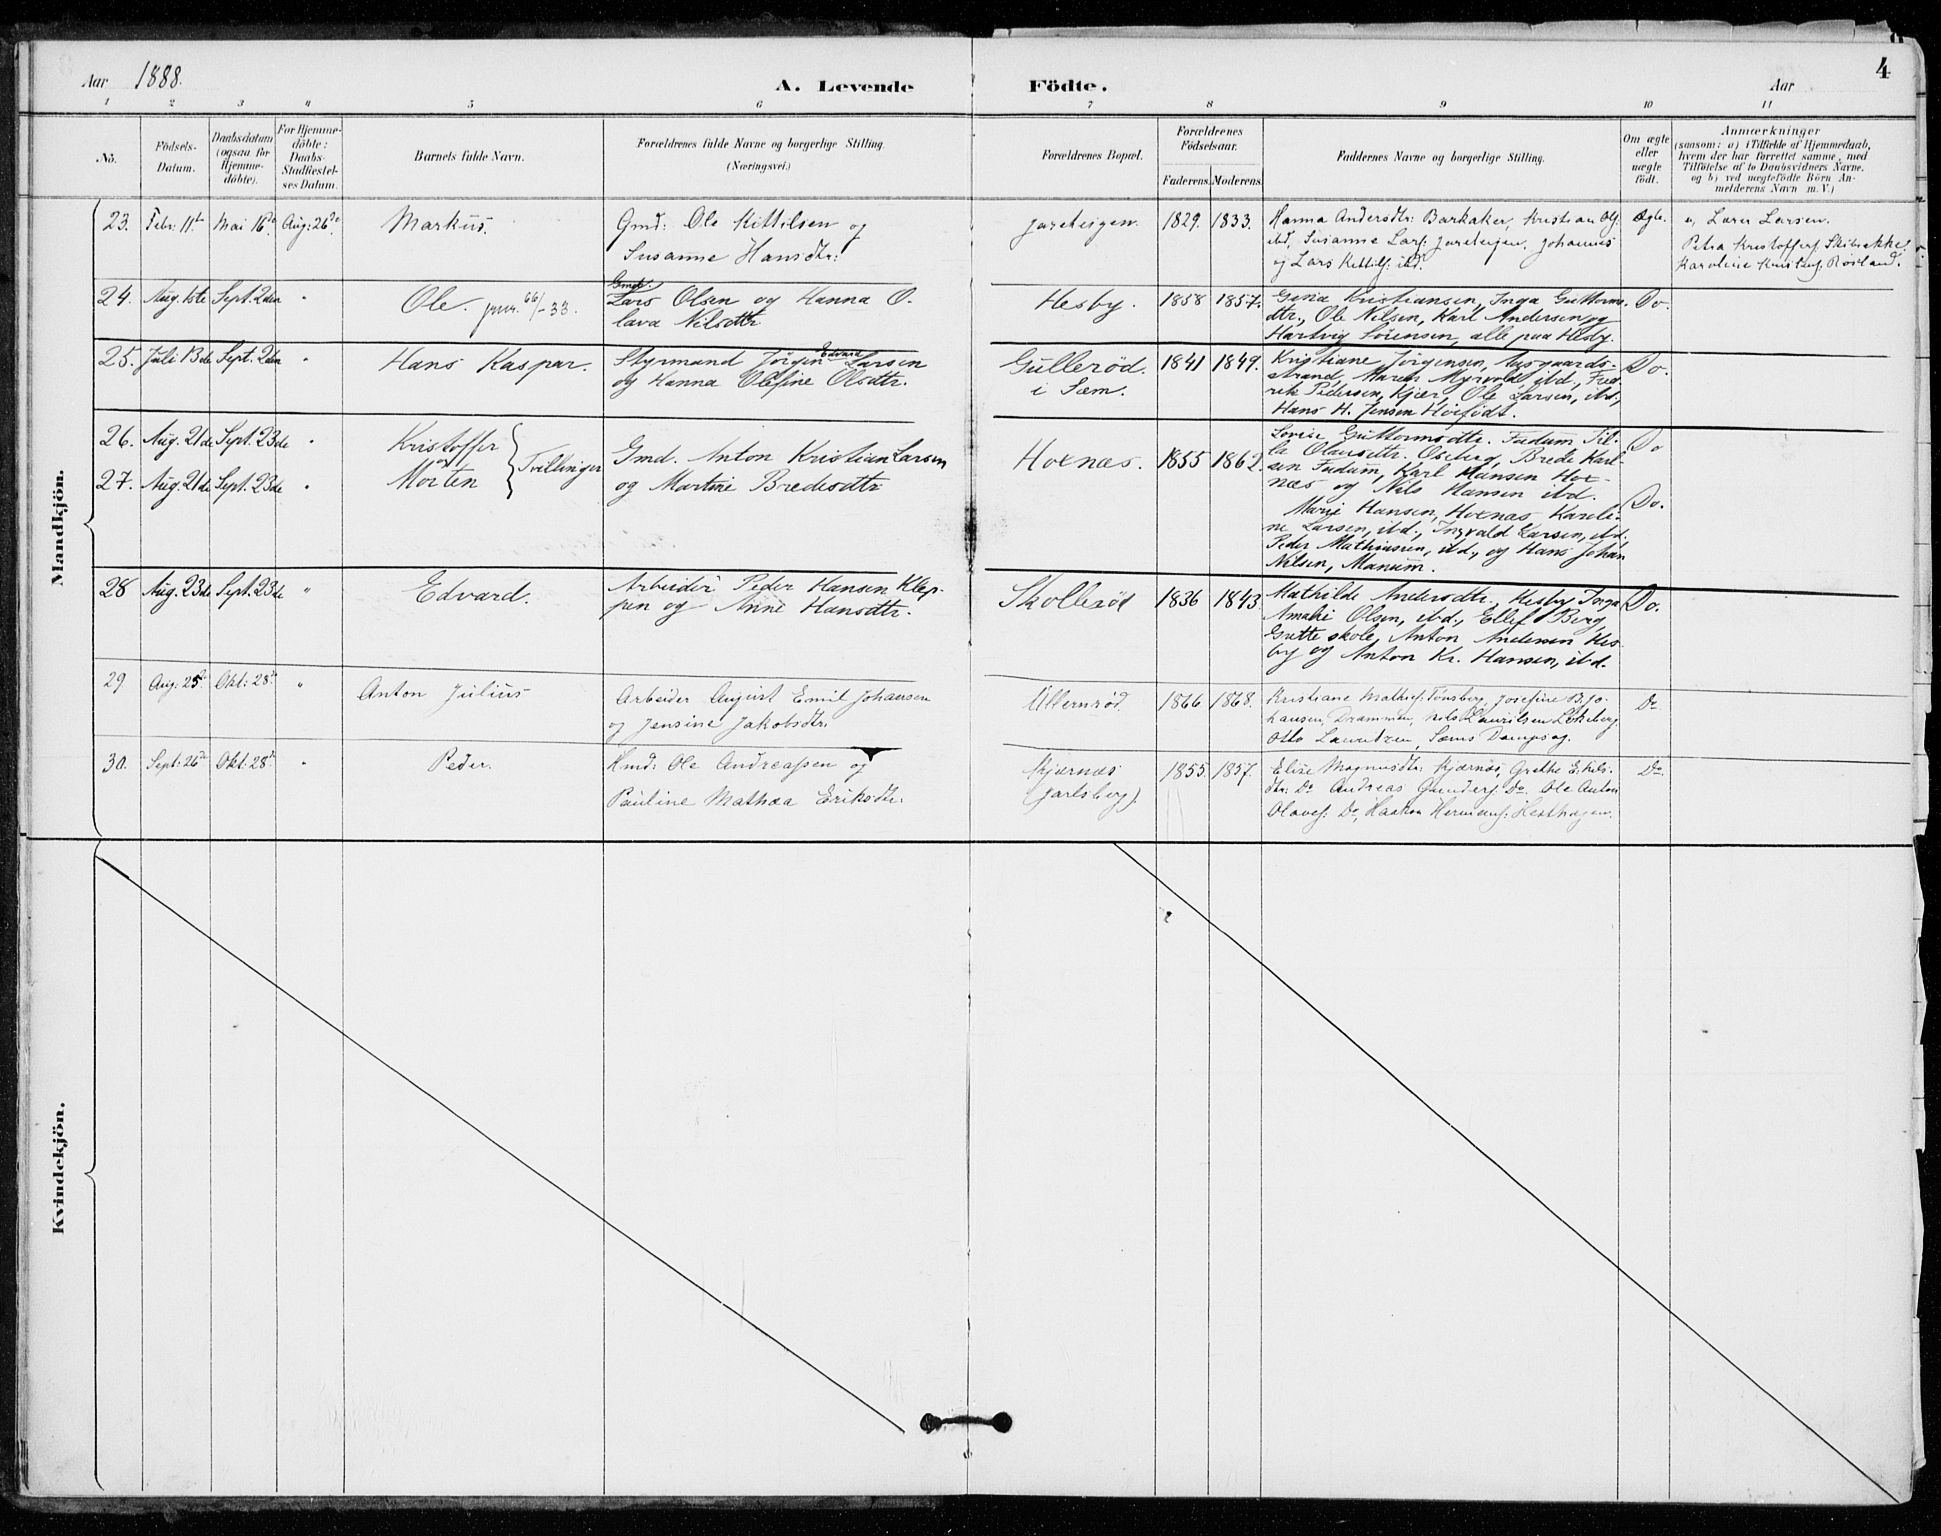 4
Aar 1888.
A. Levende Födte.
Aar
1 2 3 4 5 6 7 8 9 10 11
No.
Födsels-
Datum.
Daabsdatum
(ogsaa for
Hjemme-
döbte).
For Hjemme-
döbte:
Daabs-
Stadfæstel-
ses Datum.
Barnets fulde Navn.
Forældrenes fulde Navne og borgerlige Stilling.
(Næringsvei.)
Forældrenes Bopæl.
Forældrenes
Födselsaar.
Faderens. Moderens.
Faddernes Navne og borgerlige Stilling.
Om ægte
eller
uægte
födt.
Anmærkninger
(saasom: a) i Tilfælde af Hjemmedaab,
hvem der har forrettet samme, med
Tilföielse af to Daabsvidners Navne,
og b) ved uægtefödte Börn An-
melderens Navn m. V.)
Mandkjön.
23. Febr: 11te Mai 16de Aug: 26de
Markus.
Gmd: Ole Kittilsen og
Susanne Hansdtr:
Jareteigen.
1829. 1833.
Hanna Andersdtr: Barkaker, Kristian Ols:
ibd, Susanne Lars: Jareteigen, Johannes
og Lars Kittils: ibd.
Ægte.
a, Larer Larsen.
Petra Kristoffers: Skibrekke.
Karoline Kristens: Röiland.
24. Aug. 1ste Sept. 2den "
Ole. 66/-33.
Gmd.
Lars Olsen og Hanna O-
lava Nilsdtr
Hesby.
1858 1857.
Gina Kristiansen, Inga Guttorms-
dtr., Ole Nilsen, Karl Andersen og
Hartvig Sörensen, alle paa Hesby.
Do.
25. Juli 13de Sept. 2den "
Hans Kaspar.
Styrmand Jörgen Edvard Larsen
og Hanna Olefine Olsdtr.
Gullerød
i Sem.
1841 1849.
Kristiane Jörgensen, Aasgaards-
strand, Maren Myrvold, ibd., Fred-
rik Pedersen, Kjær, Ole Larsen, ibd.,
Hans H. Jensen Hoifödt.
Do.
26. Aug. 21de Sept. 23de "
27. Aug. 21de Sept. 23de "
Kristoffer
og
Morten
Tvillinger
Gmd. Anton Kristian Larsen
og Martine Bredesdtr
Hoxnæs.
1855 1862.
Lovise Guttormsdtr. Fadum Til-
la Olausdtr. Oseberg, Brede Karl-
sen Fadum, Karl Hansen Hox-
næs og Nils Hansen ibd.
Do
Marie Hansen, Hoxnæs Karoli-
ne Larsen, ibd., Ingvald Larsen, ibd.
Peder Mathiassen, ibd., og Hans Johan
Nilsen, Manum.
Do.
28 Aug. 23de Sept. 23de "
Edvard.
Arbeider Peder Hansen Klep-
pen og Anne Hansdtr.
Skollerød
1836 1843.
Mathilde Andersdtr, Hesby Inga
Amalie Olsen, ibd., Ellef Berg,
Grette skole, Anton Andersen Hes-
by og Anton Kr. Hansen, ibd.
Do.
29 Aug: 25de Okt: 28de "
Anton Julius
Arbeider August Emil Johansen
og Jensine Jakobsdtr.
Ullernrød.
1866 1868.
Kristiane Mathis: Tønsberg, Josefine B. Jo-
hansen, Drammen, Nils Lauritsen
Otto Lauritzen, Sæms Dampsag.
Do.
30. Sept: 26de Okt: 28de "
Peder.
Hmd: Ole Andreassen og
Pauline Mathea Eriksdtr:
Kjærnæs
(Jarlsberg).
1855. 1857.
Elise Magnusdtr: Kjærnæs, Grethe Eriks-
dtr: Do Andreas Gunders: Do. Ole Anton
Olaves: Do, Haakon Hermans: Hesthagen.
Do.
Kvindekjön.